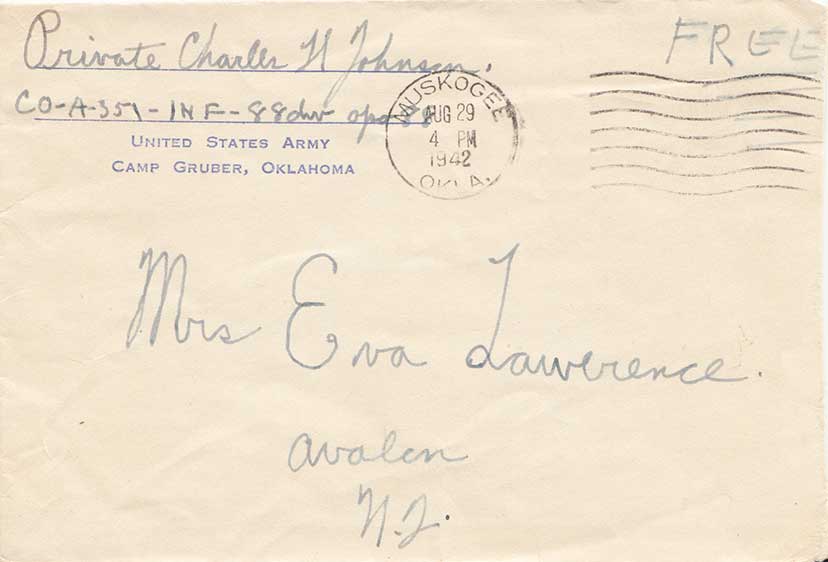 Private Charles N Johnson.
FREE
CO-A-351-INF-88div apo 88
UNITED STATES ARMY
CAMP GRUBER, OKLAHOMA
MUSKOGEE
AUG 29
4 PM
1942
OKLA.
Mrs Eva Lawerence.
Avalon
N.J.